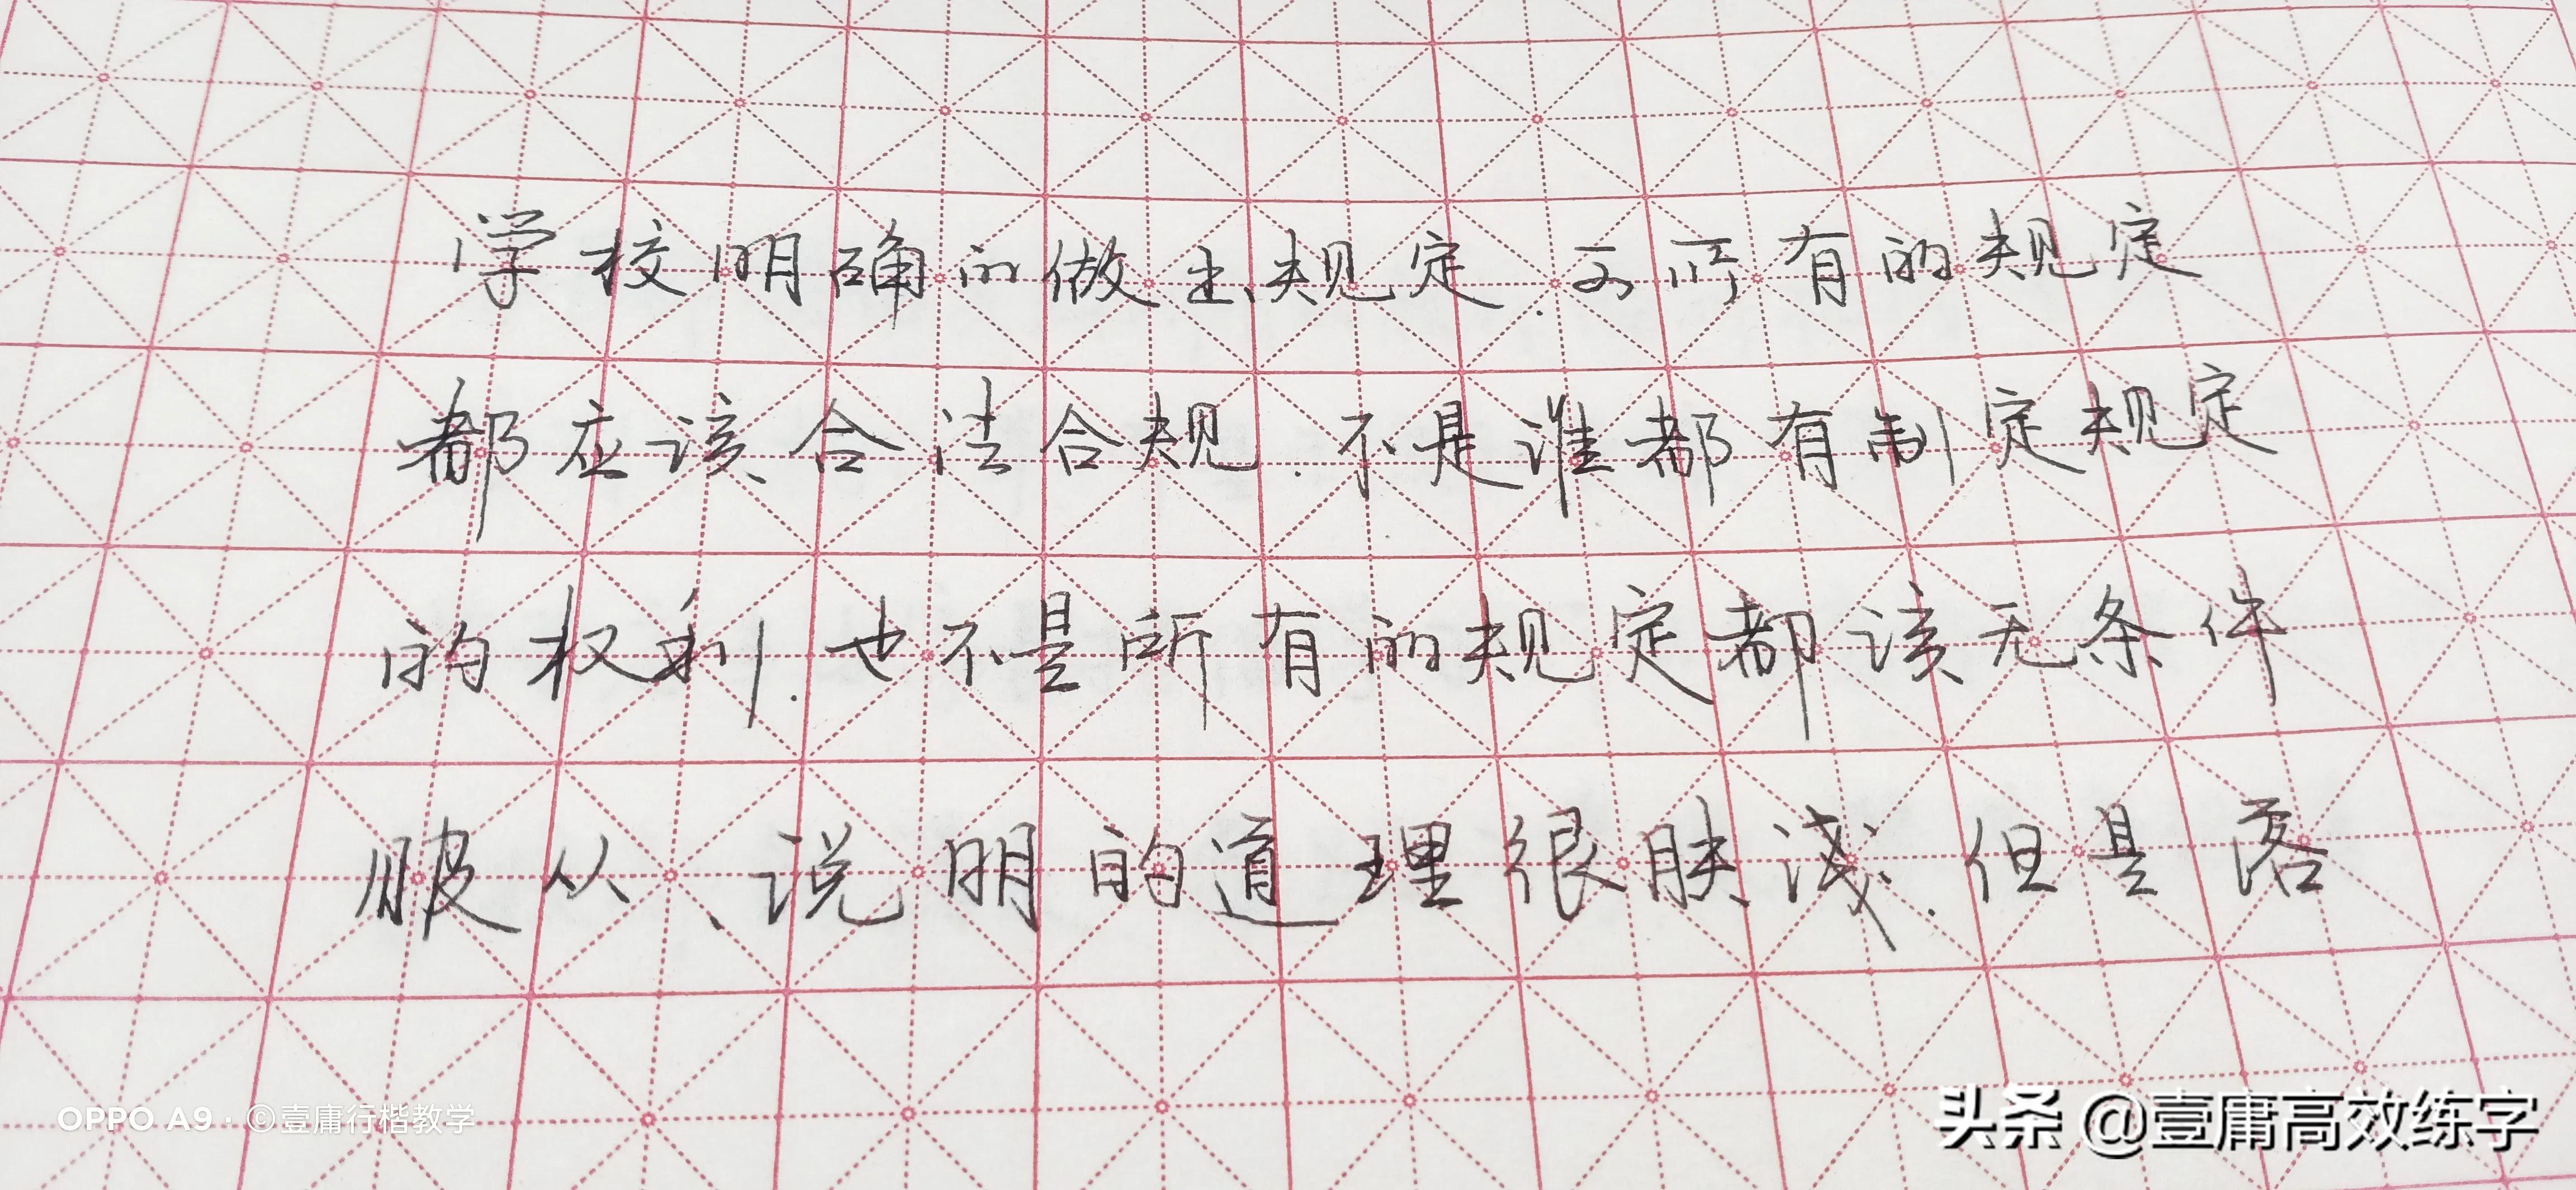 学校明确的做出规定.可所有的规定
都应该合法合规.不是谁都有制定规定
的权利.也不是所有的规定都该无条件
服从、说明的道理很肤浅.但是落
OPPO A9 · ©壹庸行楷教学
头条 @壹庸高效练字